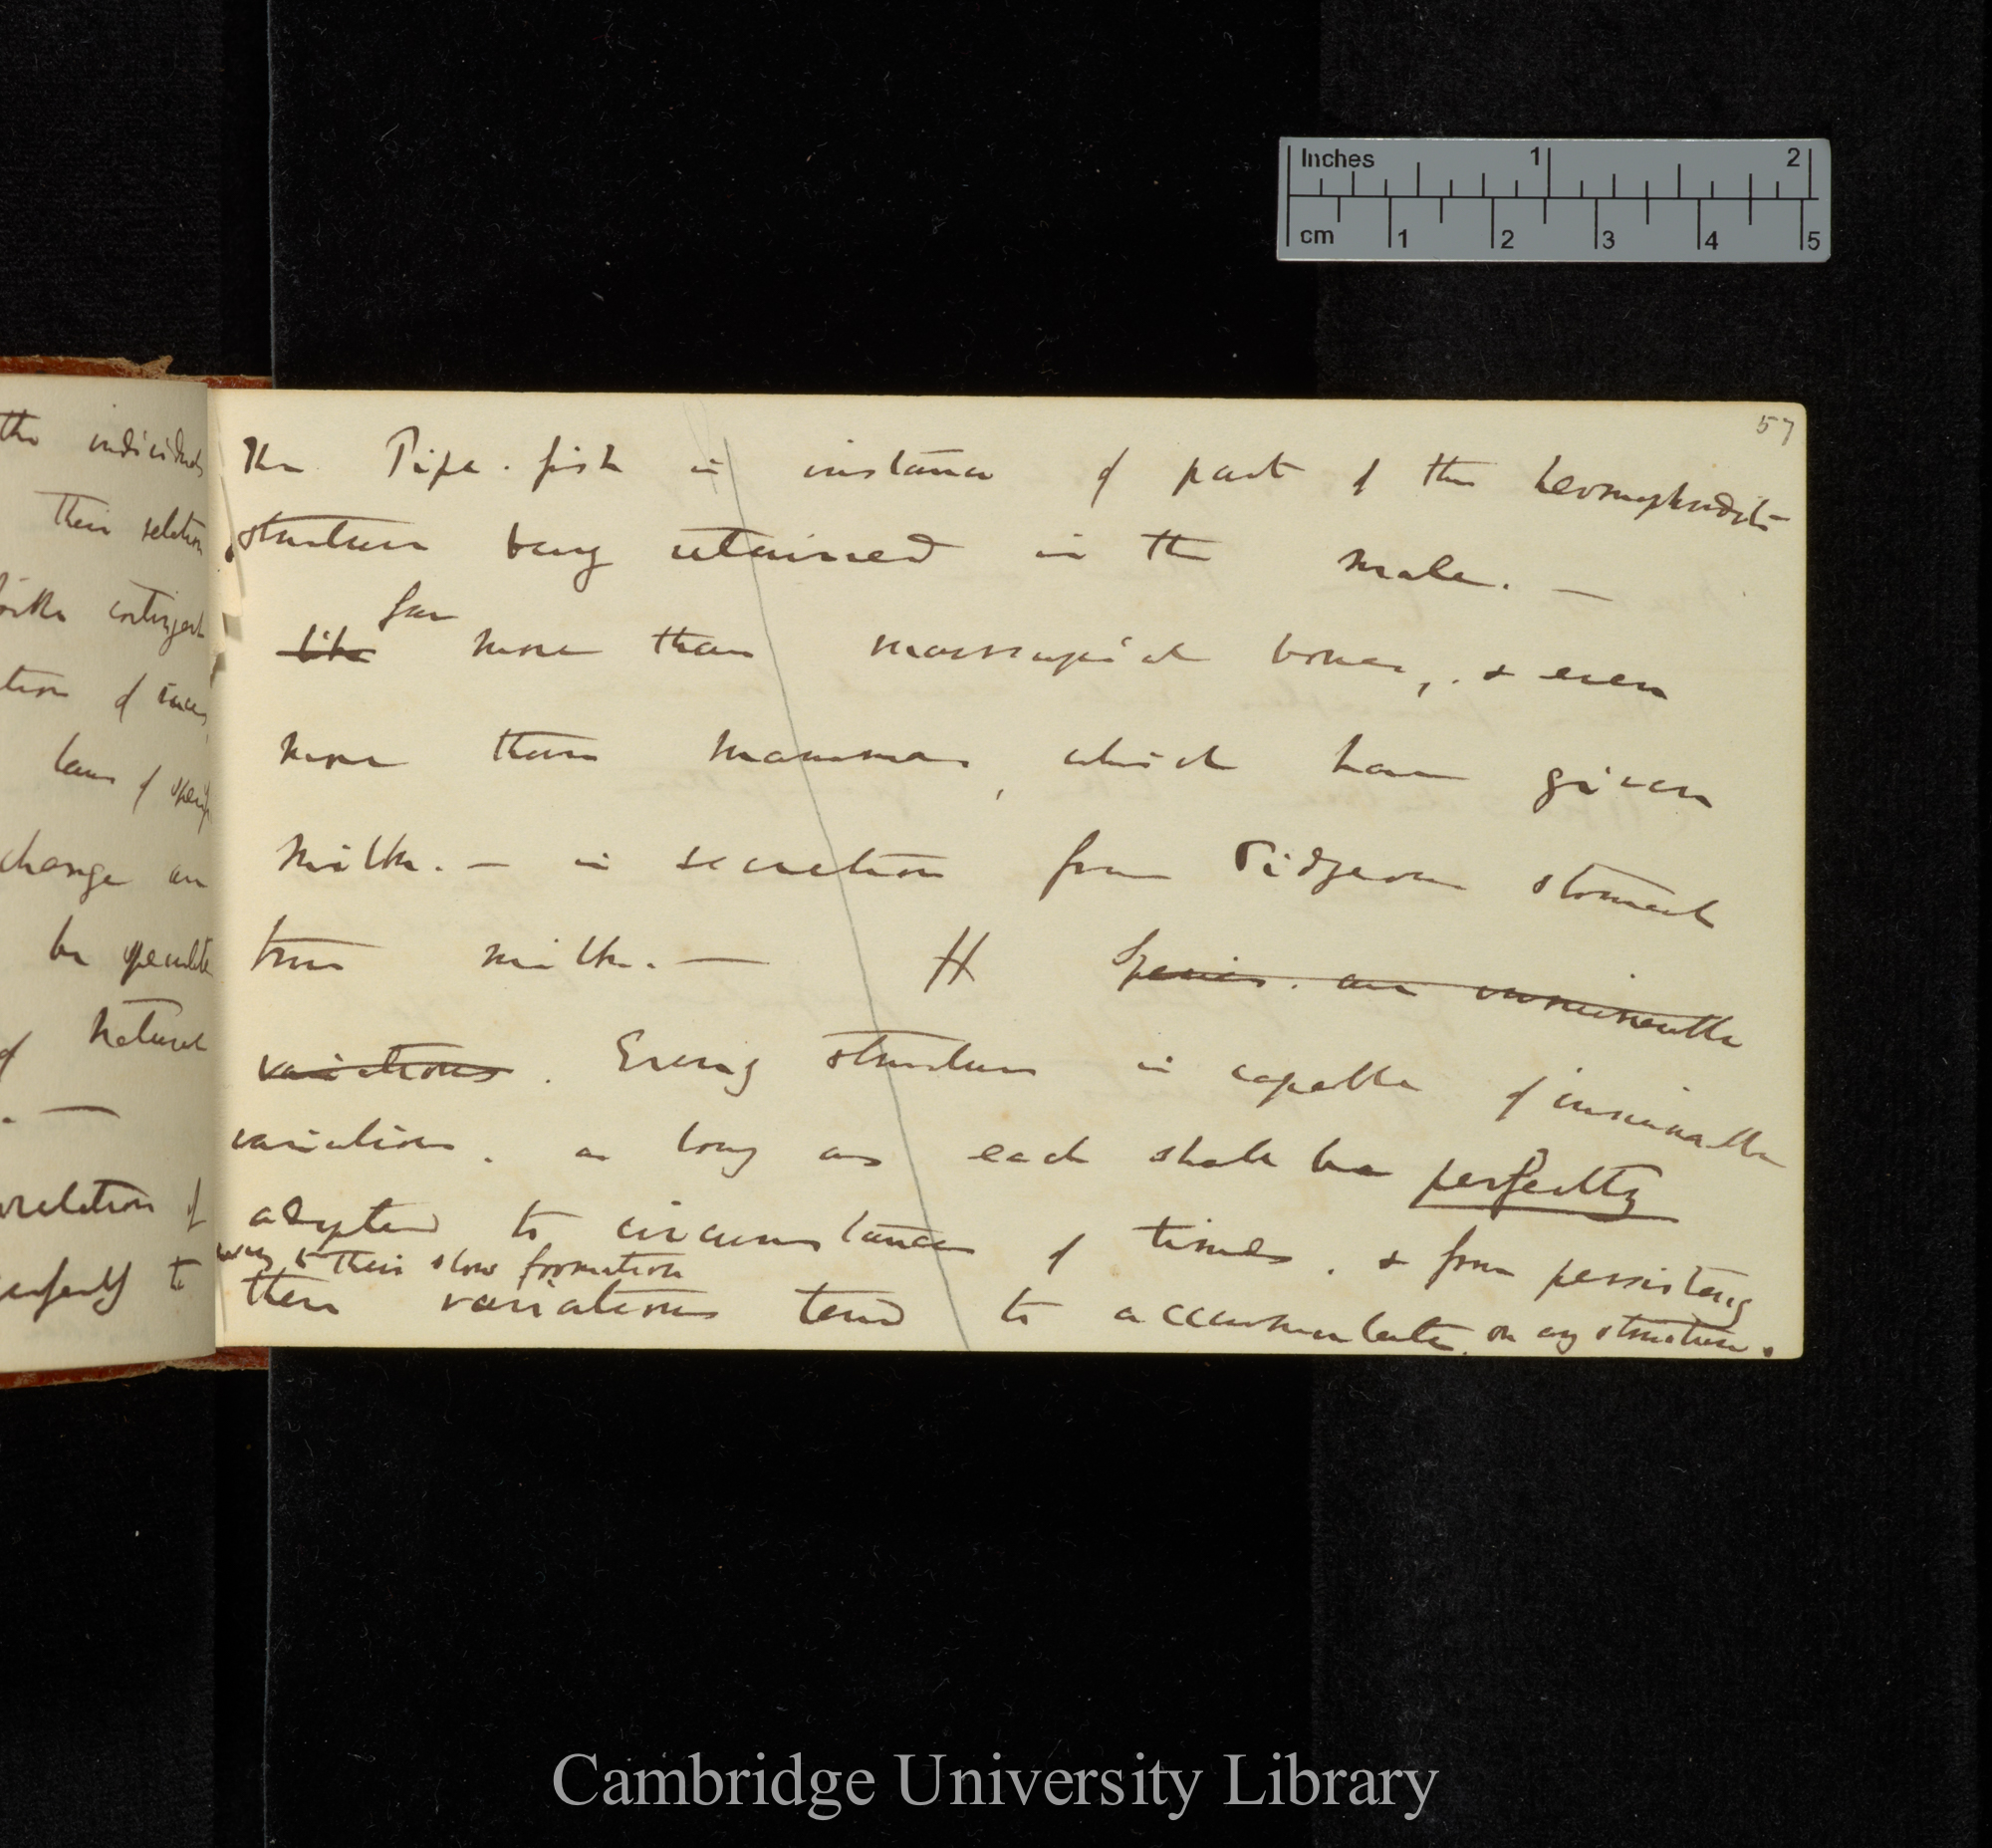 57
The Pipe. fish is instance of part of the hermaphrodite
structure being retained in the male. —
far
like more than marsupial bones,. & even
more than mammae, which have given
milk. — is secretion from Pidgeon stomach
true milk. — H Species. are innumerable
variations. Every structure is capable of innumerable
variations. as long as each shall be perfectly
adapted to circumstances of times. & from persisting
owing to their slow formation
these variations tend to accumulate on any structure.
the individuals
Their relation
contingent
tion of races
laws of
change are
be
of natural
. —
relation of
perfectly to
Inches 1 2
cm 1 2 3 4 5
Cambridge University Library